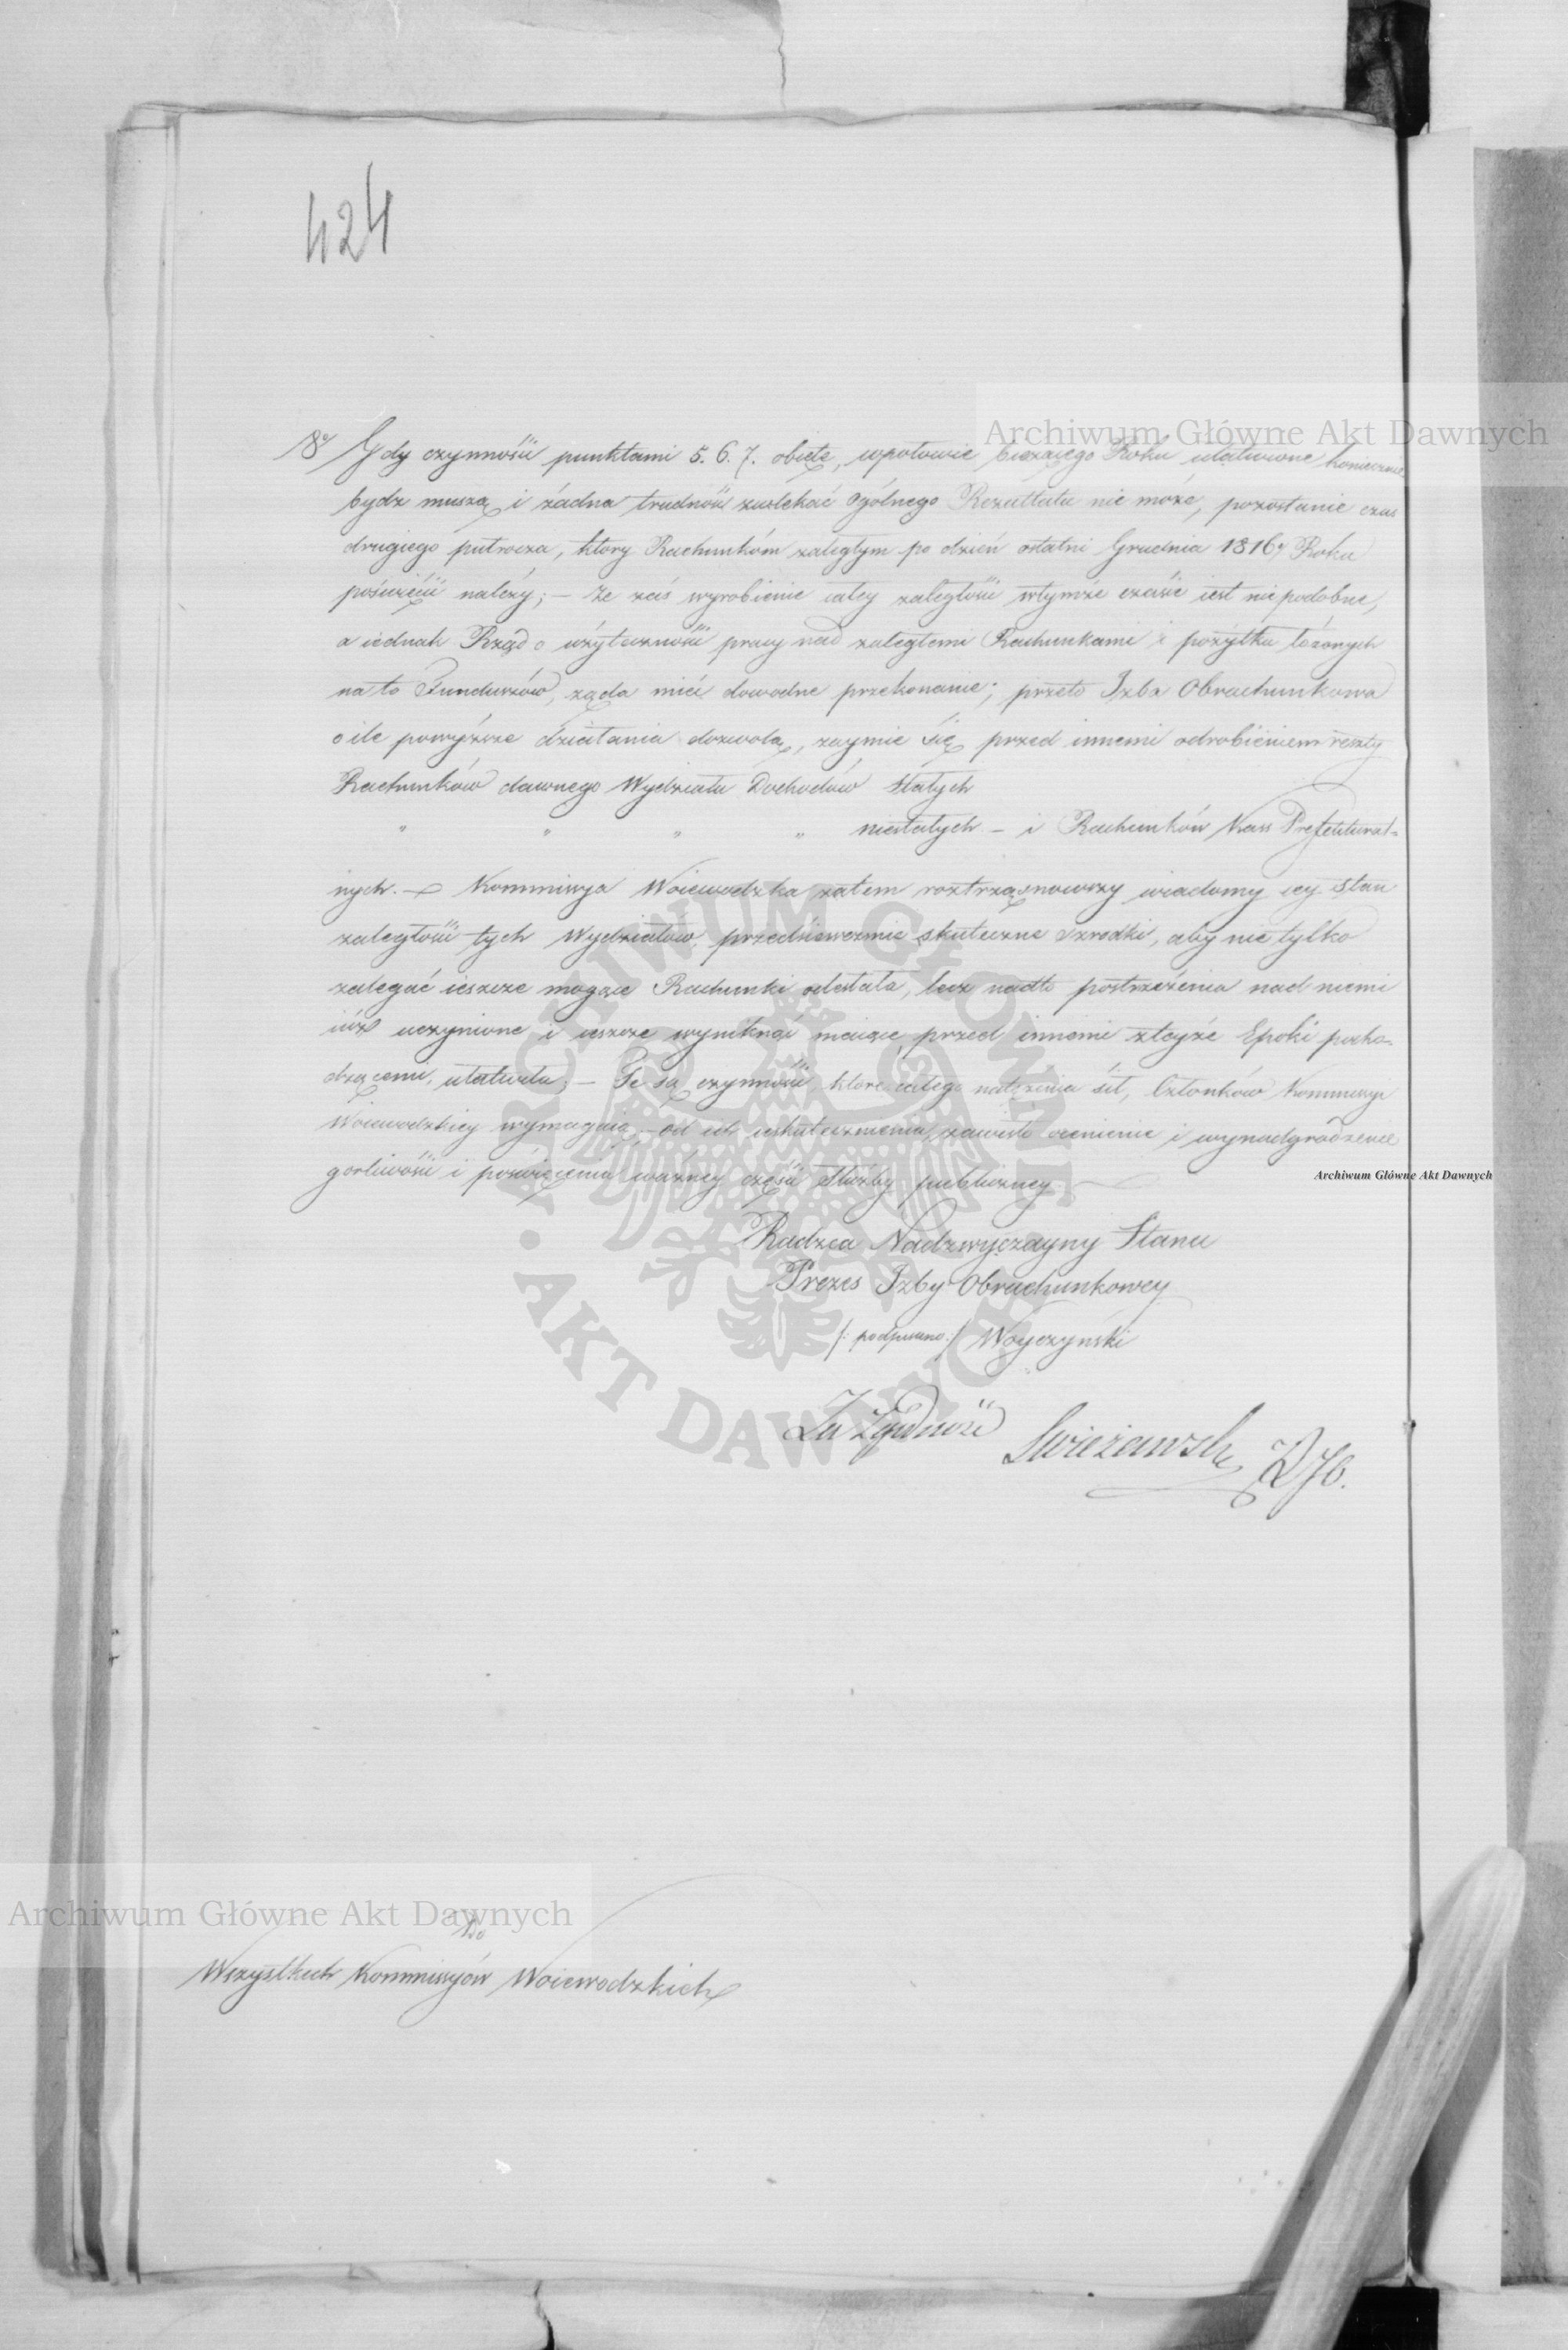 424
Archiwum Główne Akt Dawnych
8º Gdy czynności punktami 5. 6. 7. obięte, wpołowie bieżącego Roku ułatwione koniecznie
bydz muszą i żadna trudność zwlekać Ogólnego Rezultatu nie może, pozostanie czas
drugiego putrocza, ktory Rachunkóm zaległym po dzień ostatni Grudnia 1816 Roku
poświęcić należy; – że zaś wyrobienie całey zaległości wtymże czasie iest niepodobne,
a iednak Rząd o użyteczności pracy nad zaległemi Rachunkami i pożytku łożonych
na to Funduszów, żąda mieć dowodne przekonanie; przeto Izba Obrachunkowa
o ile powyższe działania dozwolą, zaymie się przed innemi odrobieniem reszty
Rachunków dawnego Wydziału Dochodów Stałych
" " " " niestałych – i Rachunków Kass Prefektural=
nych. – Kommissya Woiewodzka zatem roztrząsnąwszy wiadomy iey stan
zaległości tych Wydziałów, przedsięwezmie skuteczne szrodki, aby nie tylko
zalegać ieszcze mogące Rachunki odesłała, lecz nadto postrzeżenia nad niemi
iuż uczynione i ieszcze wyniknąć maiące, przed innemi zteyże Epoki pocho-
dzącemi, ułatwiła; – Te są czynności, które całego natężenia sił, Członków Kommissyi
Woiewodzkiey wymagaią; – od ich uskutecznienia, zawisło ocenienie i wynadgrodzenie
gorliwości i poświęcenia ważney części służby publiczney.
Archiwum Główne Akt Dawnych
Radzca Nadzwyczayny Stanu
Prezes Izby Obrachunkowey
/: podpisano :/ Woyczyński
Za Zgodność Swieżawski
ARCHIWUM GŁÓWNE · AKT DAWNYCH ·
Archiwum Główne Akt Dawnych
Do
Wszystkich Kommissyów Woiewodzkich